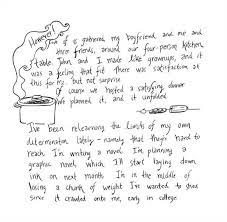 However!
of us gathered, my boyfriend, and me and
three friends, around our four-person kitchen
table. John and I made like grownups, and it
was a feeling that fit. There was satisfaction at
this for me, but not surprise.
Of course we hosted a satisfying dinner
We planned it, and it unfolded.
I've been relearning the limits of my own
determination lately - namely that they're hard to
reach. I'm writing a novel. I'm planning a
graphic novel, which I'll start laying down
ink on next month. I'm in the middle of
losing a chunk of weight I've wanted to since
since it crawled onto me, early in college